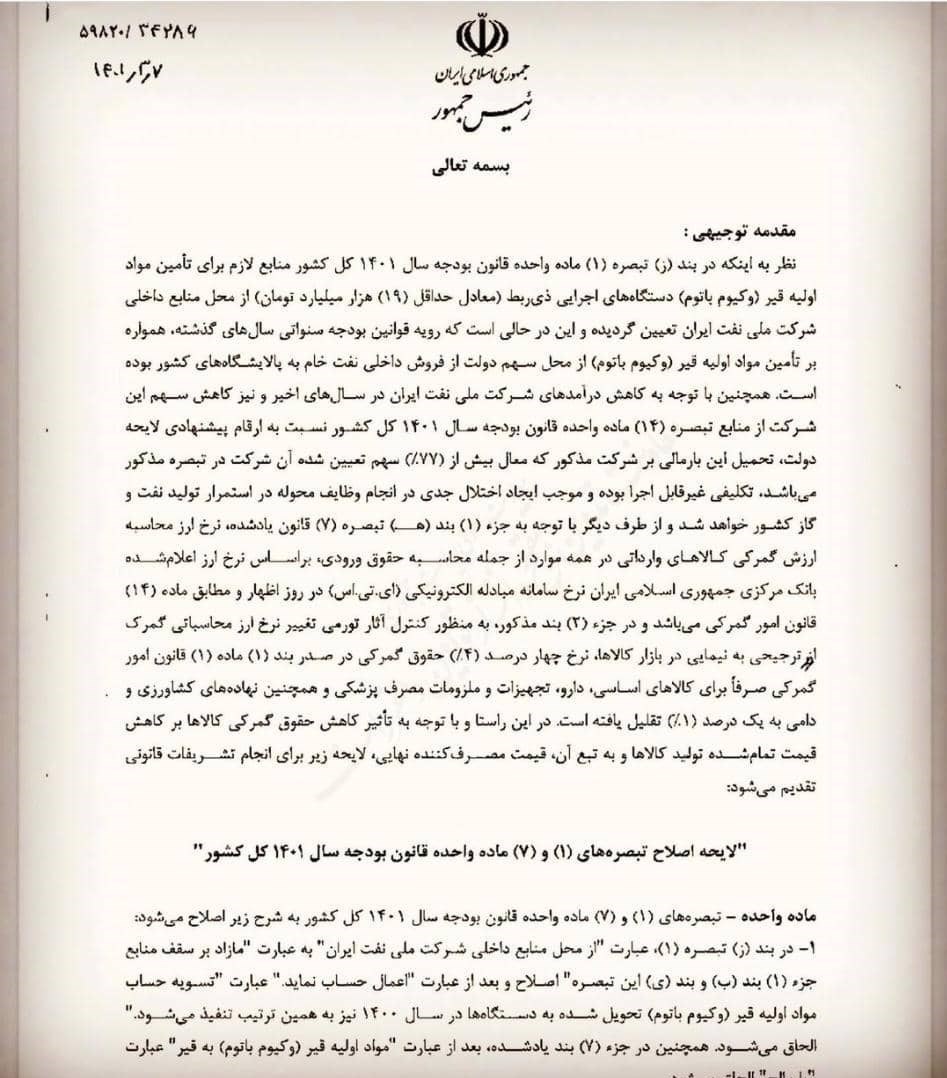 ۵۹۸۲۰/۳۴۲۸۶
۱۴۰۱/۳/۷
جمهوری اسلامی ایران
رئیس جمهور
بسمه تعالی
مقدمه توجیهی :
نظر به اینکه در بند (ز) تبصره (۱) ماده واحده قانون بودجه سال ۱۴۰۱ کل کشور منابع لازم برای تأمین مواد
اولیه قیر (وکیوم باتوم) دستگاه‌های اجرایی ذی‌ربط (معادل حداقل (۱۹) هزار میلیارد تومان) از محل منابع داخلی
شرکت ملی نفت ایران تعیین گردیده و این در حالی است که رویه قوانین بودجه سنواتی سال‌های گذشته، همواره
بر تأمین مواد اولیه قیر (وکیوم باتوم) از محل سهم دولت از فروش داخلی نفت خام به پالایشگاه‌های کشور بوده
است. همچنین با توجه به کاهش درآمدهای شرکت ملی نفت ایران در سال‌های اخیر و نیز کاهش سهم این
شرکت از منابع تبصره (۱۴) ماده واحده قانون بودجه سال ۱۴۰۱ کل کشور نسبت به ارقام پیشنهادی لایحه
دولت، تحمیل این بارمالی بر شرکت مذکور که معال بیش از (۷۷٪) سهم تعیین شده آن شرکت در تبصره مذکور
می‌باشد، تکلیفی غیرقابل اجرا بوده و موجب ایجاد اختلال جدی در انجام وظایف محوله در استمرار تولید نفت و
گاز کشور خواهد شد و از طرف دیگر با توجه به جزء (۱) بند (هـ) تبصره (۷) قانون یادشده، نرخ ارز محاسبه
ارزش گمرکی کالاهای وارداتی در همه موارد از جمله محاسبه حقوق ورودی، براساس نرخ ارز اعلام‌شده
بانک مرکزی جمهوری اسلامی ایران نرخ سامانه مبادله الکترونیکی (ای.تی.اس) در روز اظهار و مطابق ماده (۱۴)
قانون امور گمرکی می‌باشد و در جزء (۲) بند مذکور، به منظور کنترل آثار تورمی تغییر نرخ ارز محاسباتی گمرک
از ترجیحی به نیمایی در بازار کالاها، نرخ چهار درصد (۴٪) حقوق گمرکی در صدر بند (۱) ماده (۱) قانون امور
گمرکی صرفاً برای کالاهای اساسی، دارو، تجهیزات و ملزومات مصرف پزشکی و همچنین نهاده‌های کشاورزی و
دامی به یک درصد (۱٪) تقلیل یافته است. در این راستا و با توجه به تأثیر کاهش حقوق گمرکی کالاها بر کاهش
قیمت تمام‌شده تولید کالاها و به تبع آن، قیمت مصرف‌کننده نهایی، لایحه زیر برای انجام تشریفات قانونی
تقدیم می‌شود:
"لایحه اصلاح تبصره‌های (۱) و (۷) ماده واحده قانون بودجه سال ۱۴۰۱ کل کشور"
ماده واحده – تبصره‌های (۱) و (۷) ماده واحده قانون بودجه سال ۱۴۰۱ کل کشور به شرح زیر اصلاح می‌شود:
۱- در بند (ز) تبصره (۱)، عبارت "از محل منابع داخلی شرکت ملی نفت ایران" به عبارت "مازاد بر سقف منابع
جزء (۱) بند (ب) و بند (ی) این تبصره" اصلاح و بعد از عبارت "اعمال حساب نماید." عبارت "تسویه حساب
مواد اولیه قیر (وکیوم باتوم) تحویل شده به دستگاه‌ها در سال ۱۴۰۰ نیز به همین ترتیب تنفیذ می‌شود."
الحاق می‌شود. همچنین در جزء (۷) بند یادشده، بعد از عبارت "مواد اولیه قیر (وکیوم باتوم) به قیر" عبارت